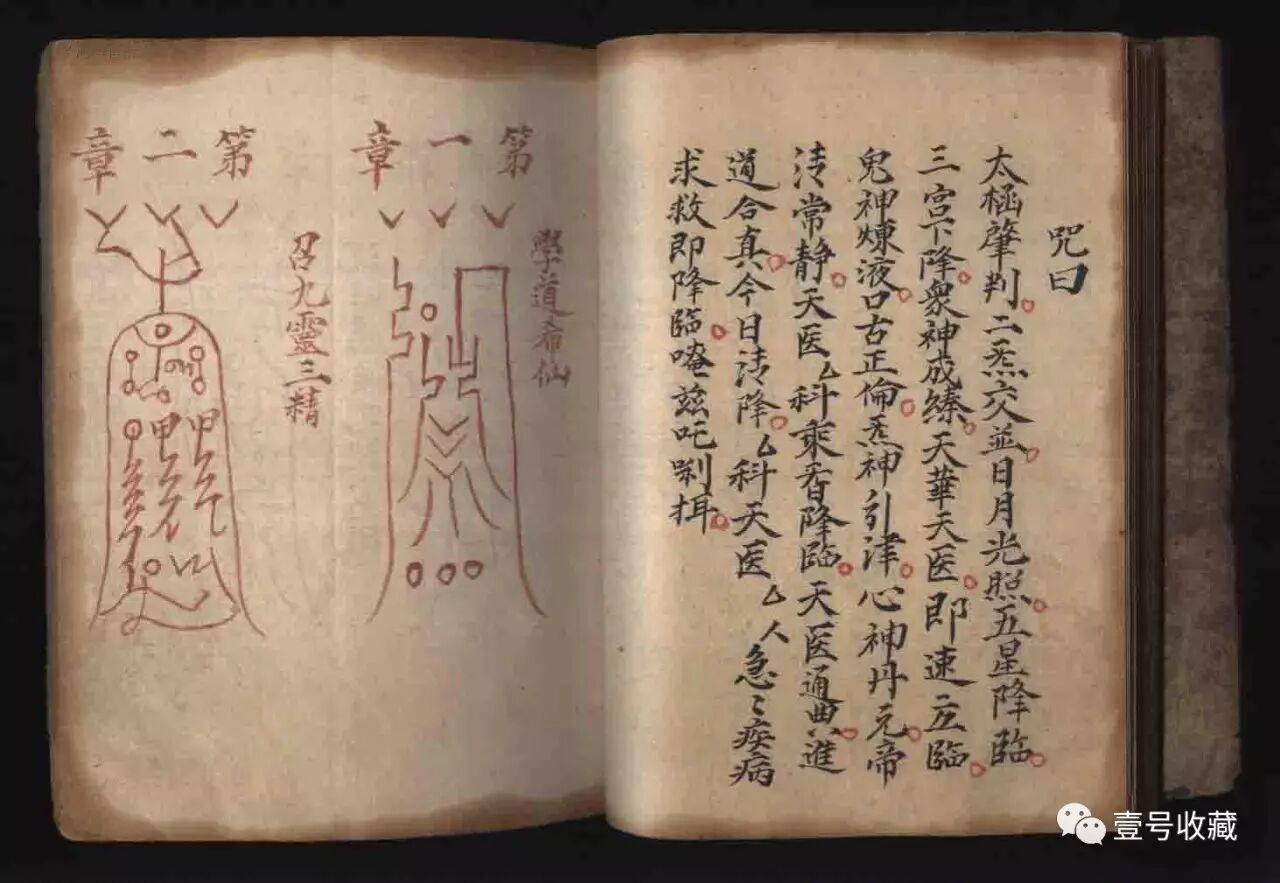 咒曰
太極肇判二炁交並日月光照五星降臨
三宫下降衆神成天華天医即速立臨
鬼神煉液口古正倫炁神引津心神丹元帝
清常静天医厶科乘香降臨天医通典進
道合真今日清降厶科天医厶人急〻疾病
求救即降臨唵兹吒唎揖
第一章
學道希仙
第二章
召九靈三精
壹号收藏